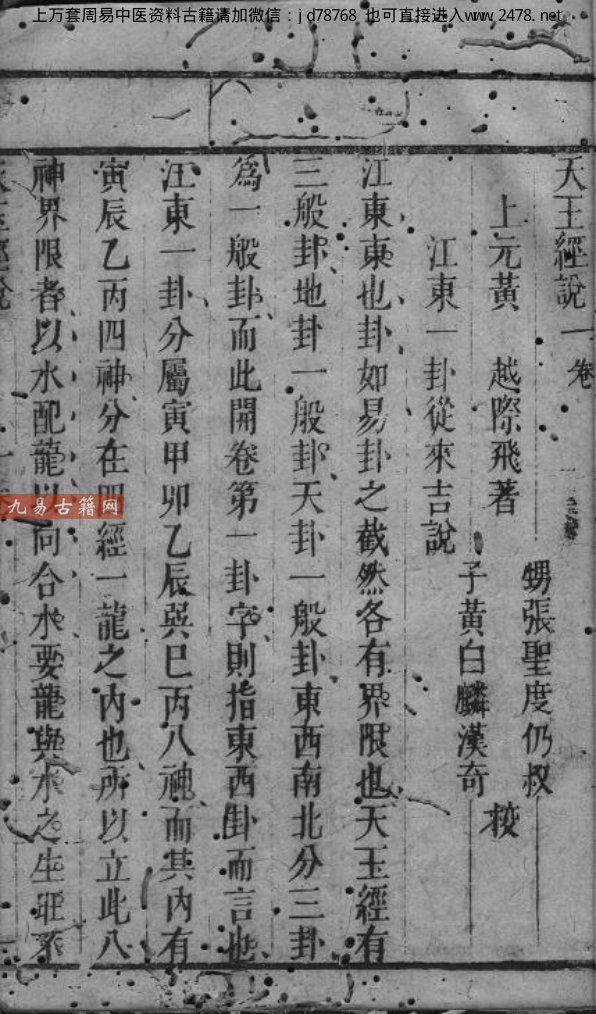 上万套周易中医资料古籍请加微信：jd78768 也可直接进入www.2478.net
天玉經說一卷
上元黃 越際飛著
甥張聖度仍叔
子黃白麟漢奇
校
江東一卦從來吉說
江東東也卦如易卦之截然各有界限也天玉經有
三般卦地卦一般卦天卦一般卦東西南北分三卦
爲一般卦而此開卷第一卦字則指東西卦而言也
江東一卦分屬寅甲卯乙辰巽巳丙八神而其內有
寅辰乙丙四神分在四經一龍之內也所以立此八
神界限者以水配龍以向合水要龍與水之生旺不
九易古籍网